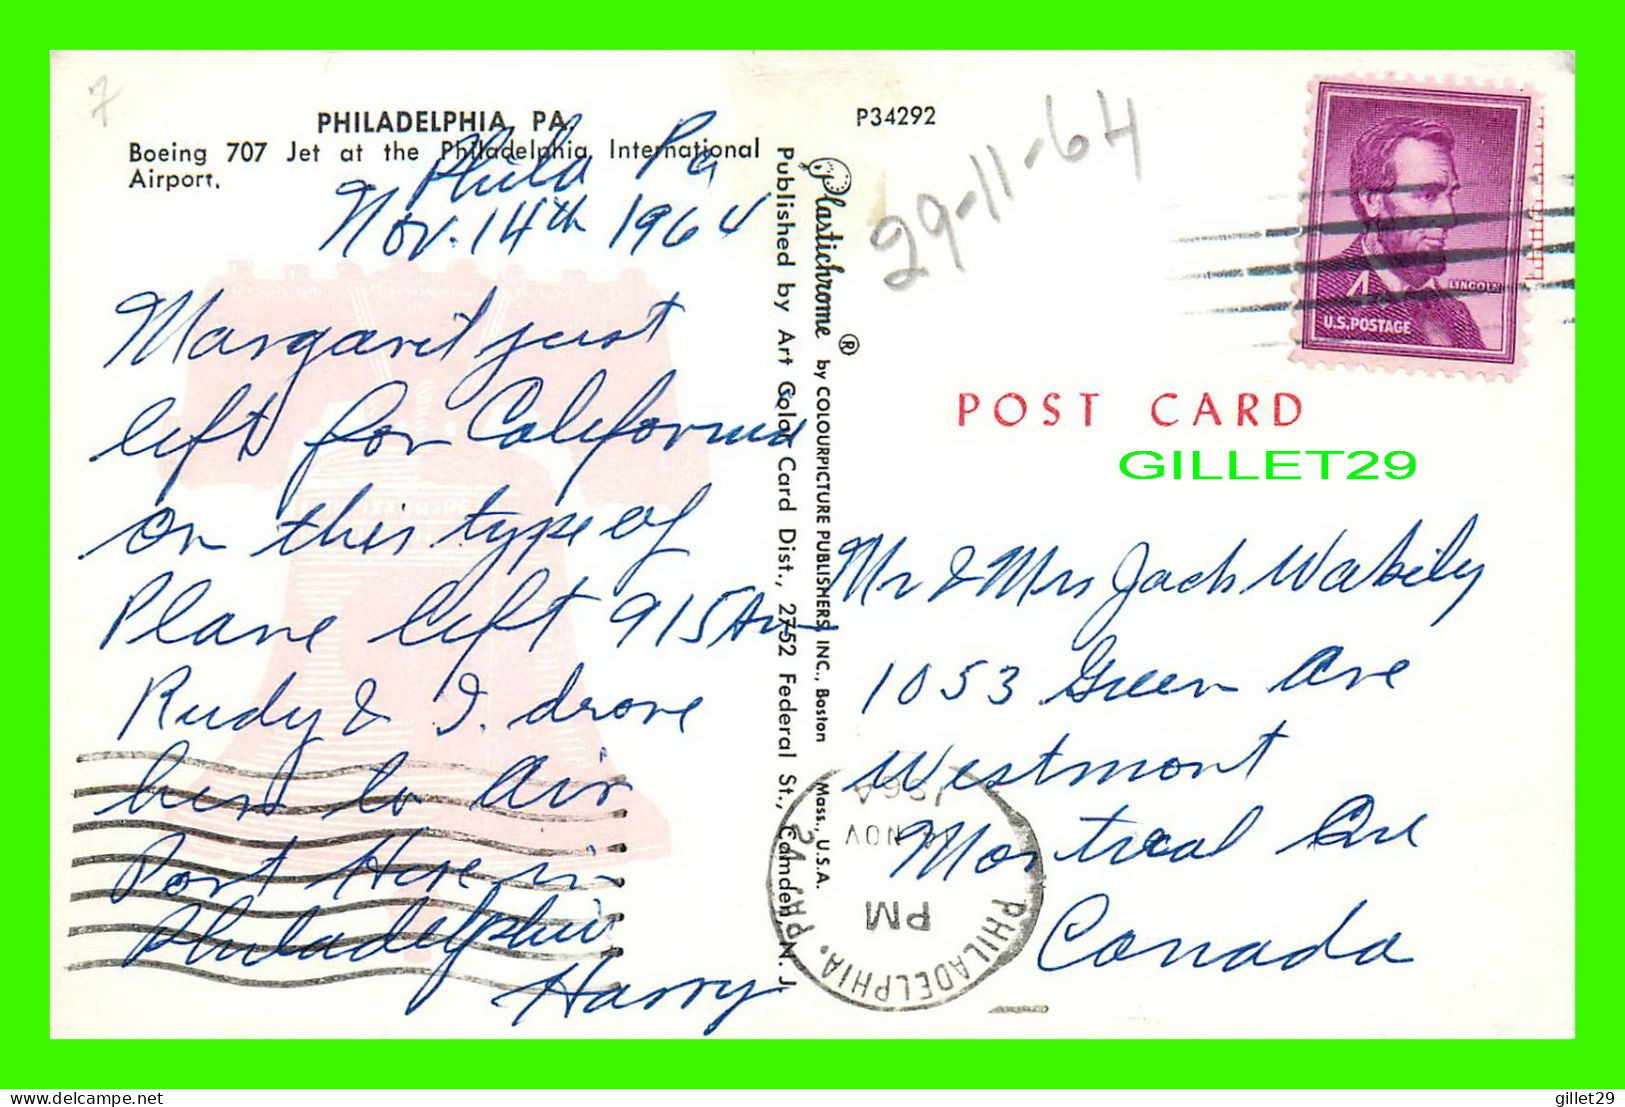 7
PHILADELPHIA, PA.
Boeing 707 Jet at the Philadelphia International
Airport.
Phila Pa
Nov. 14th 1964
Margaret just
left for California
on this type of
Plane left 915 AM
Rudy & I. drove
her to Air
Port Here in
Philadelphia
Harry
Published by Art Color Card Dist., 2752 Federal St., Camden, N. J.
Plastichrome ® by COLOURPICTURE PUBLISHERS, INC., Boston Mass., U.S.A.
P34292
29-11-64
4
LINCOLN
U.S. POSTAGE
POST CARD
GILLET29
Mr & Mrs Jack Wakely
1053 Green Ave
Westmont
Montreal Que
Canada
PHILADELPHIA, PA.
PM
NOV
1964
delcampe.net
gillet29